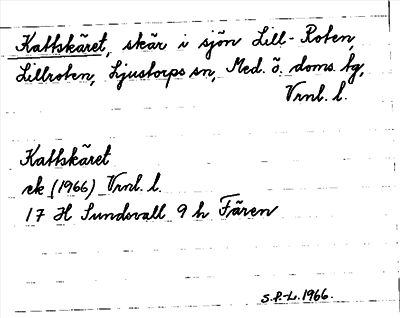 Kattskäret, skär i sjön Lill-Roten,
Lillroten, Ljustorps sn, Med. ö. doms. hg,
Vrnl. l.
Kattskäret
ek (1966) Vrnl. l.
17 H Sundsvall 9 h Fären
S.P-L. 1966.